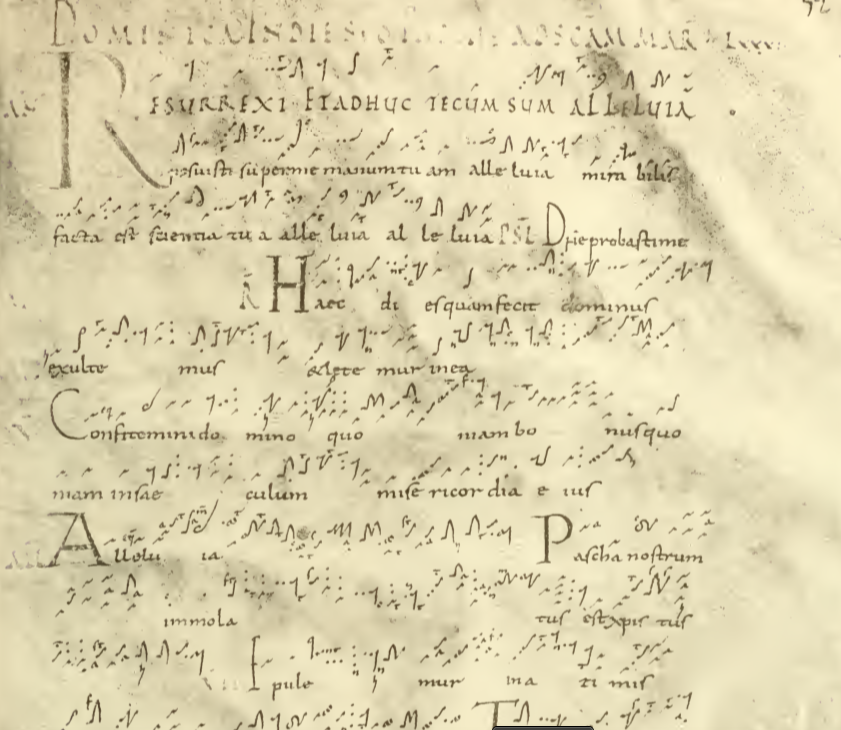 DOMINICA IN DIE S AD SCAM MAR
RESURREXI ET ADHUC TECUM SUM ALLELUIA
posuisti super me manum tu am alle luia mira bilis
facta est scientia tu a alle luia al le luia PSL Dne probasti me
R Haec di es quam fecit dominus
exulte mus & laete mur in ea
Confitemini do mino quo niam bo nus quo
niam in sae culum mise ricor dia e ius
Allelu ia Pascha nostrum
immola tus est xps tus
Epule mur in a zi mis